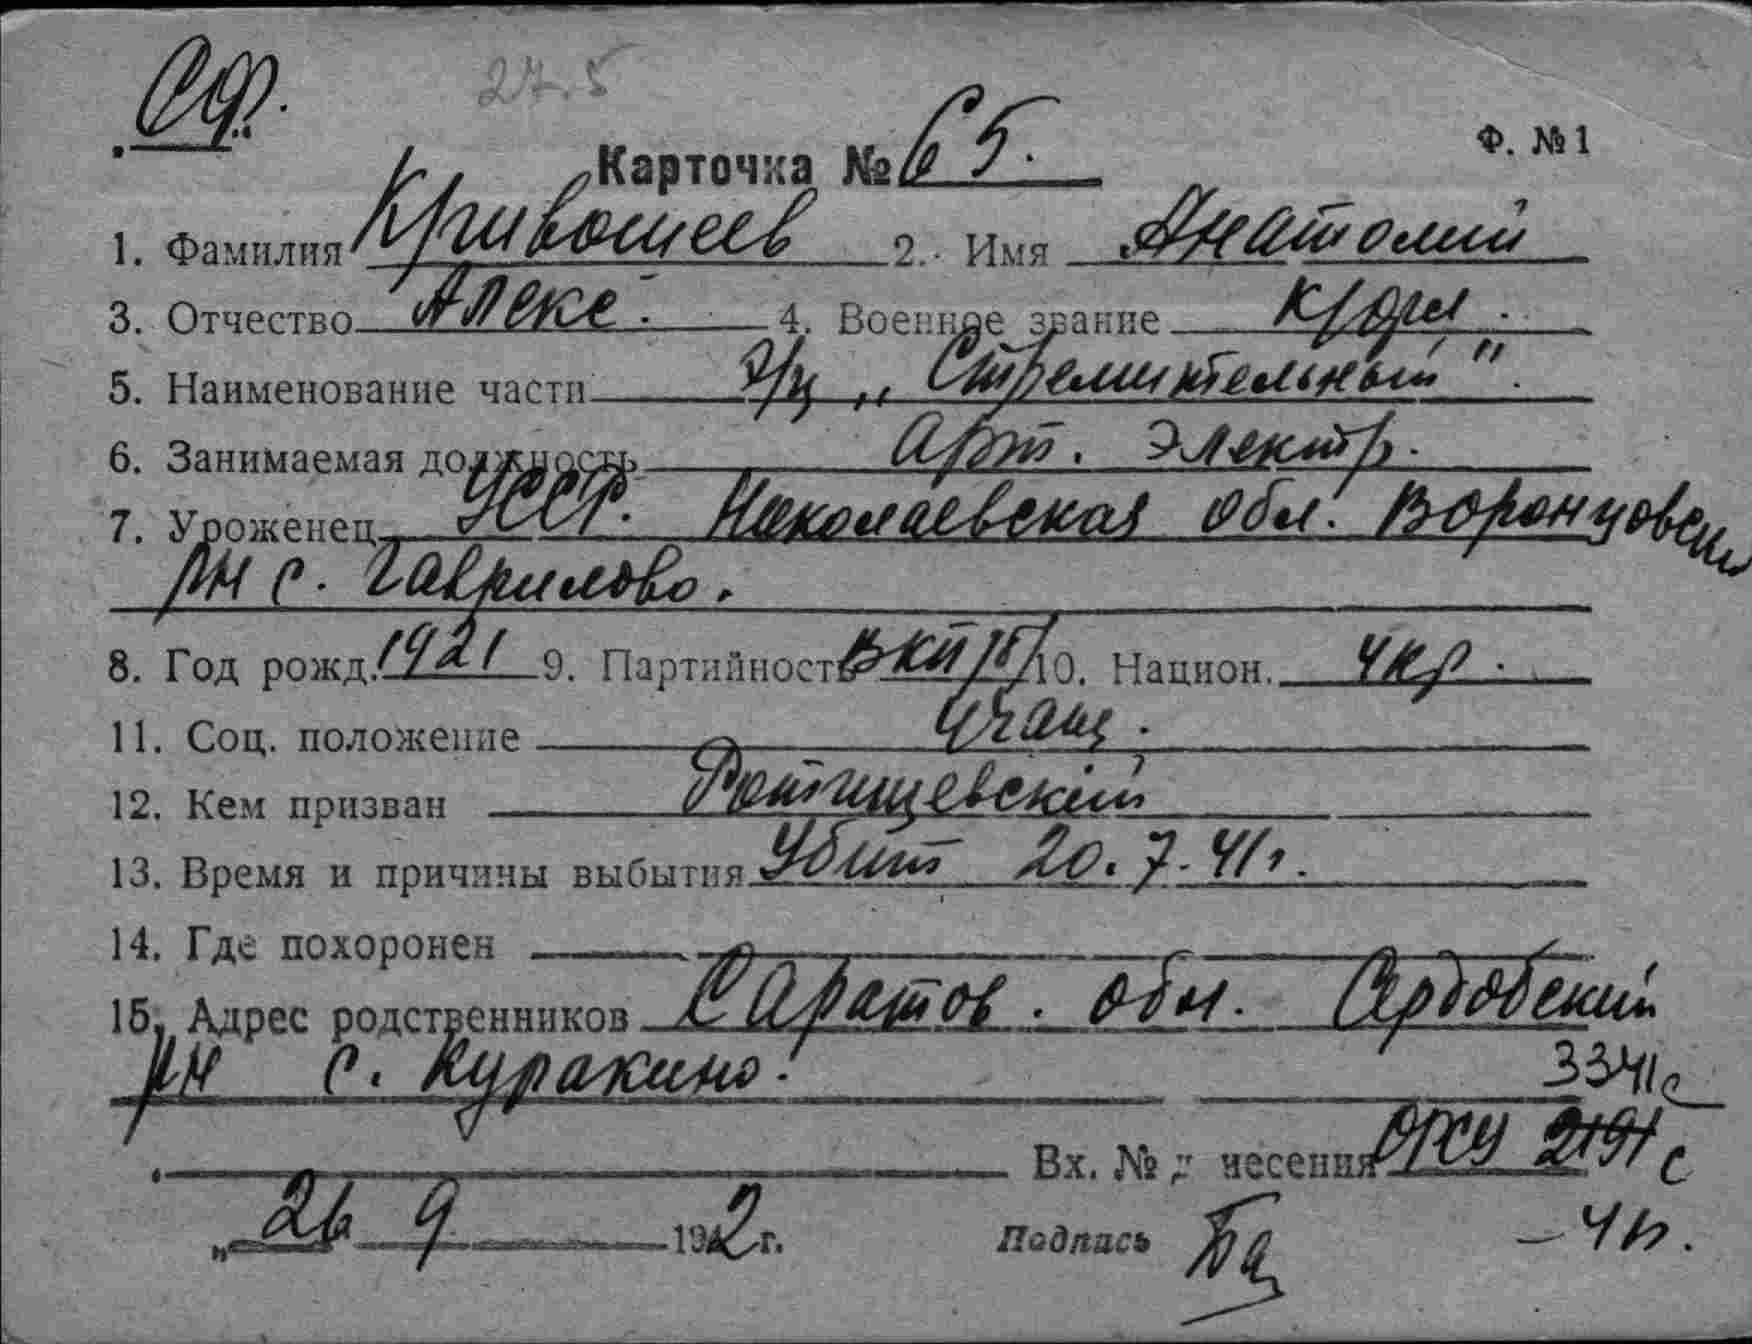 СФ.
27.5
Ф. №1
Карточка № 65.
1. Фамилия Кривошеев 2. Имя Анатолий
3. Отчество Алекс. 4. Военное звание к/фл.
5. Наименование части э/м „Стремительный".
6. Занимаемая должность Арт. электр.
7. Уроженец УССР. Николаевская обл. Воронцовский
рн с. Гаврилово.
8. Год рожд. 1921 9. Партийность ВКП/б/ 10. Национ. Укр.
11. Соц. положение Учащ.
12. Кем призван Ртищевский
13. Время и причины выбытия Убит 20.7.41г.
14. Где похоронен
15. Адрес родственников Саратов. обл. Сердобский
рн с. Куракино.
3341с
Вх. № донесения ОРСУ 2191с
„26 9 1942 г. Подпись Ба